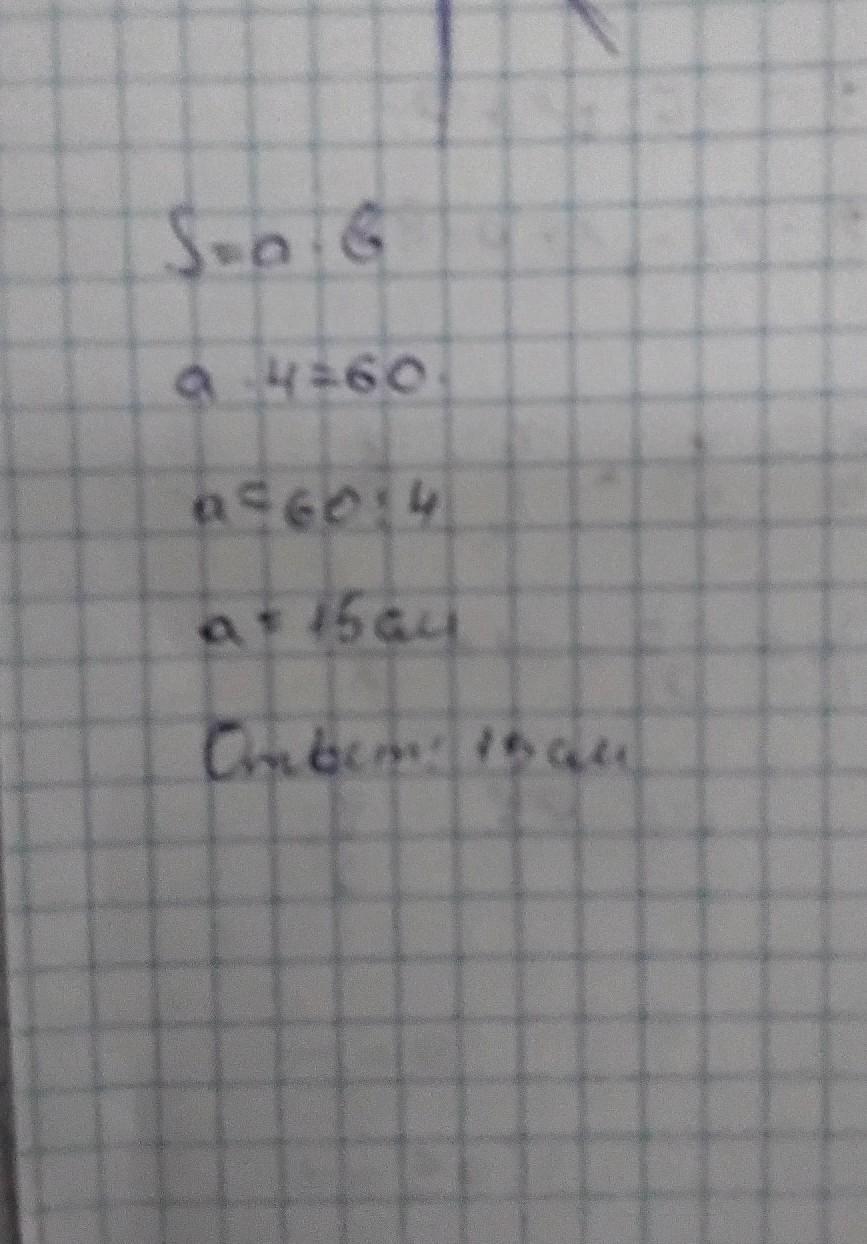 S=a·б
a·4=60
a=60:4
a=15см
Ответ: 15см